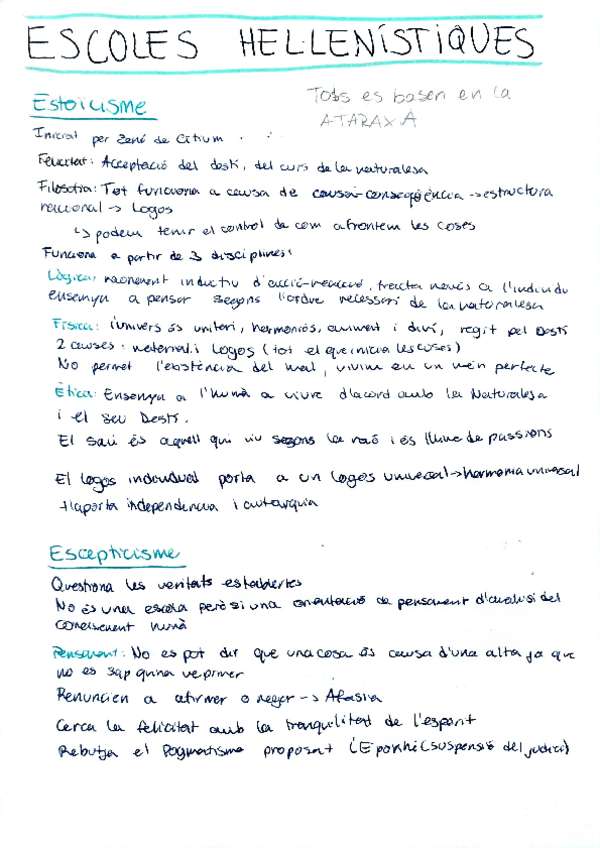 ESCOLES HELLENÍSTIQUES
Tots es basen en la
ATARAXA
Estoïcisme
Iniciat per Zenó de Citium
Felicitat: Acceptació del destí, del curs de la naturalesa
Filosofia: Tot funciona a causa de causa-conseqüència -> estructura
racional -> Logos
↳ podem tenir el control de com afrontem les coses
Funciona a partir de 3 disciplines:
Lògica: raonament inductiu d'acció-reacció, tracta només a l'individu
ensenya a pensar segons l'ordre necessari de la naturalesa
Física: l'univers és unitari, harmoniós, animat i diví, regit pel Destí
2 causes: material i Logos (tot el que inicia les coses)
No permet l'existència del mal, vivim en un món perfecte
Ètica: Ensenya a l'humà a viure d'acord amb la Naturalesa
i el seu Destí.
El savi és aquell qui viu segons la raó i és lliure de passions
El logos individual porta a un logos universal -> harmonia universal
+ laporta independencia i autarquia
Escepticisme
Questiona les veritats establertes
No és una escola però si una orientació de pensament d'analisi del
coneixement humà
Pensament: No es pot dir que una cosa és causa d'una altra ja que
no es sap quina ve primer
Renuncien a afirmar o negar -> Afasia
Cerca la felicitat amb la tranquilitat de l'esperit
Rebutja el Dogmatisme proposant L'Epokhé (suspensió del judici)